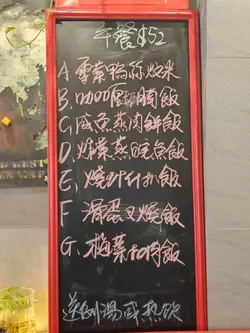 午餐$52
A 雪菜鴨絲炆米
B. 咖喱牛腩飯
C. 咸魚蒸肉餅飯
D. 蒸鯇魚飯
E. 燒飯
F 滑蛋叉燒飯
G. 梅菜扣肉飯
送例湯或熱飲